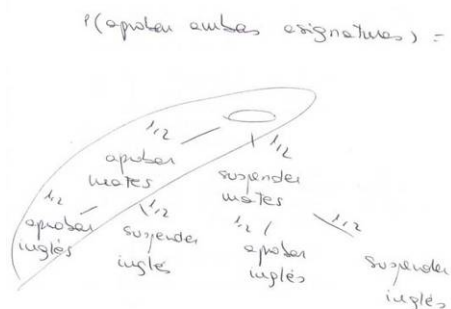 P(aprobar ambas asignaturas) =
1/2 1/2
aprobar mates suspender mates
1/2 1/2 1/2 1/2
aprobar inglés suspender inglés aprobar inglés suspender inglés